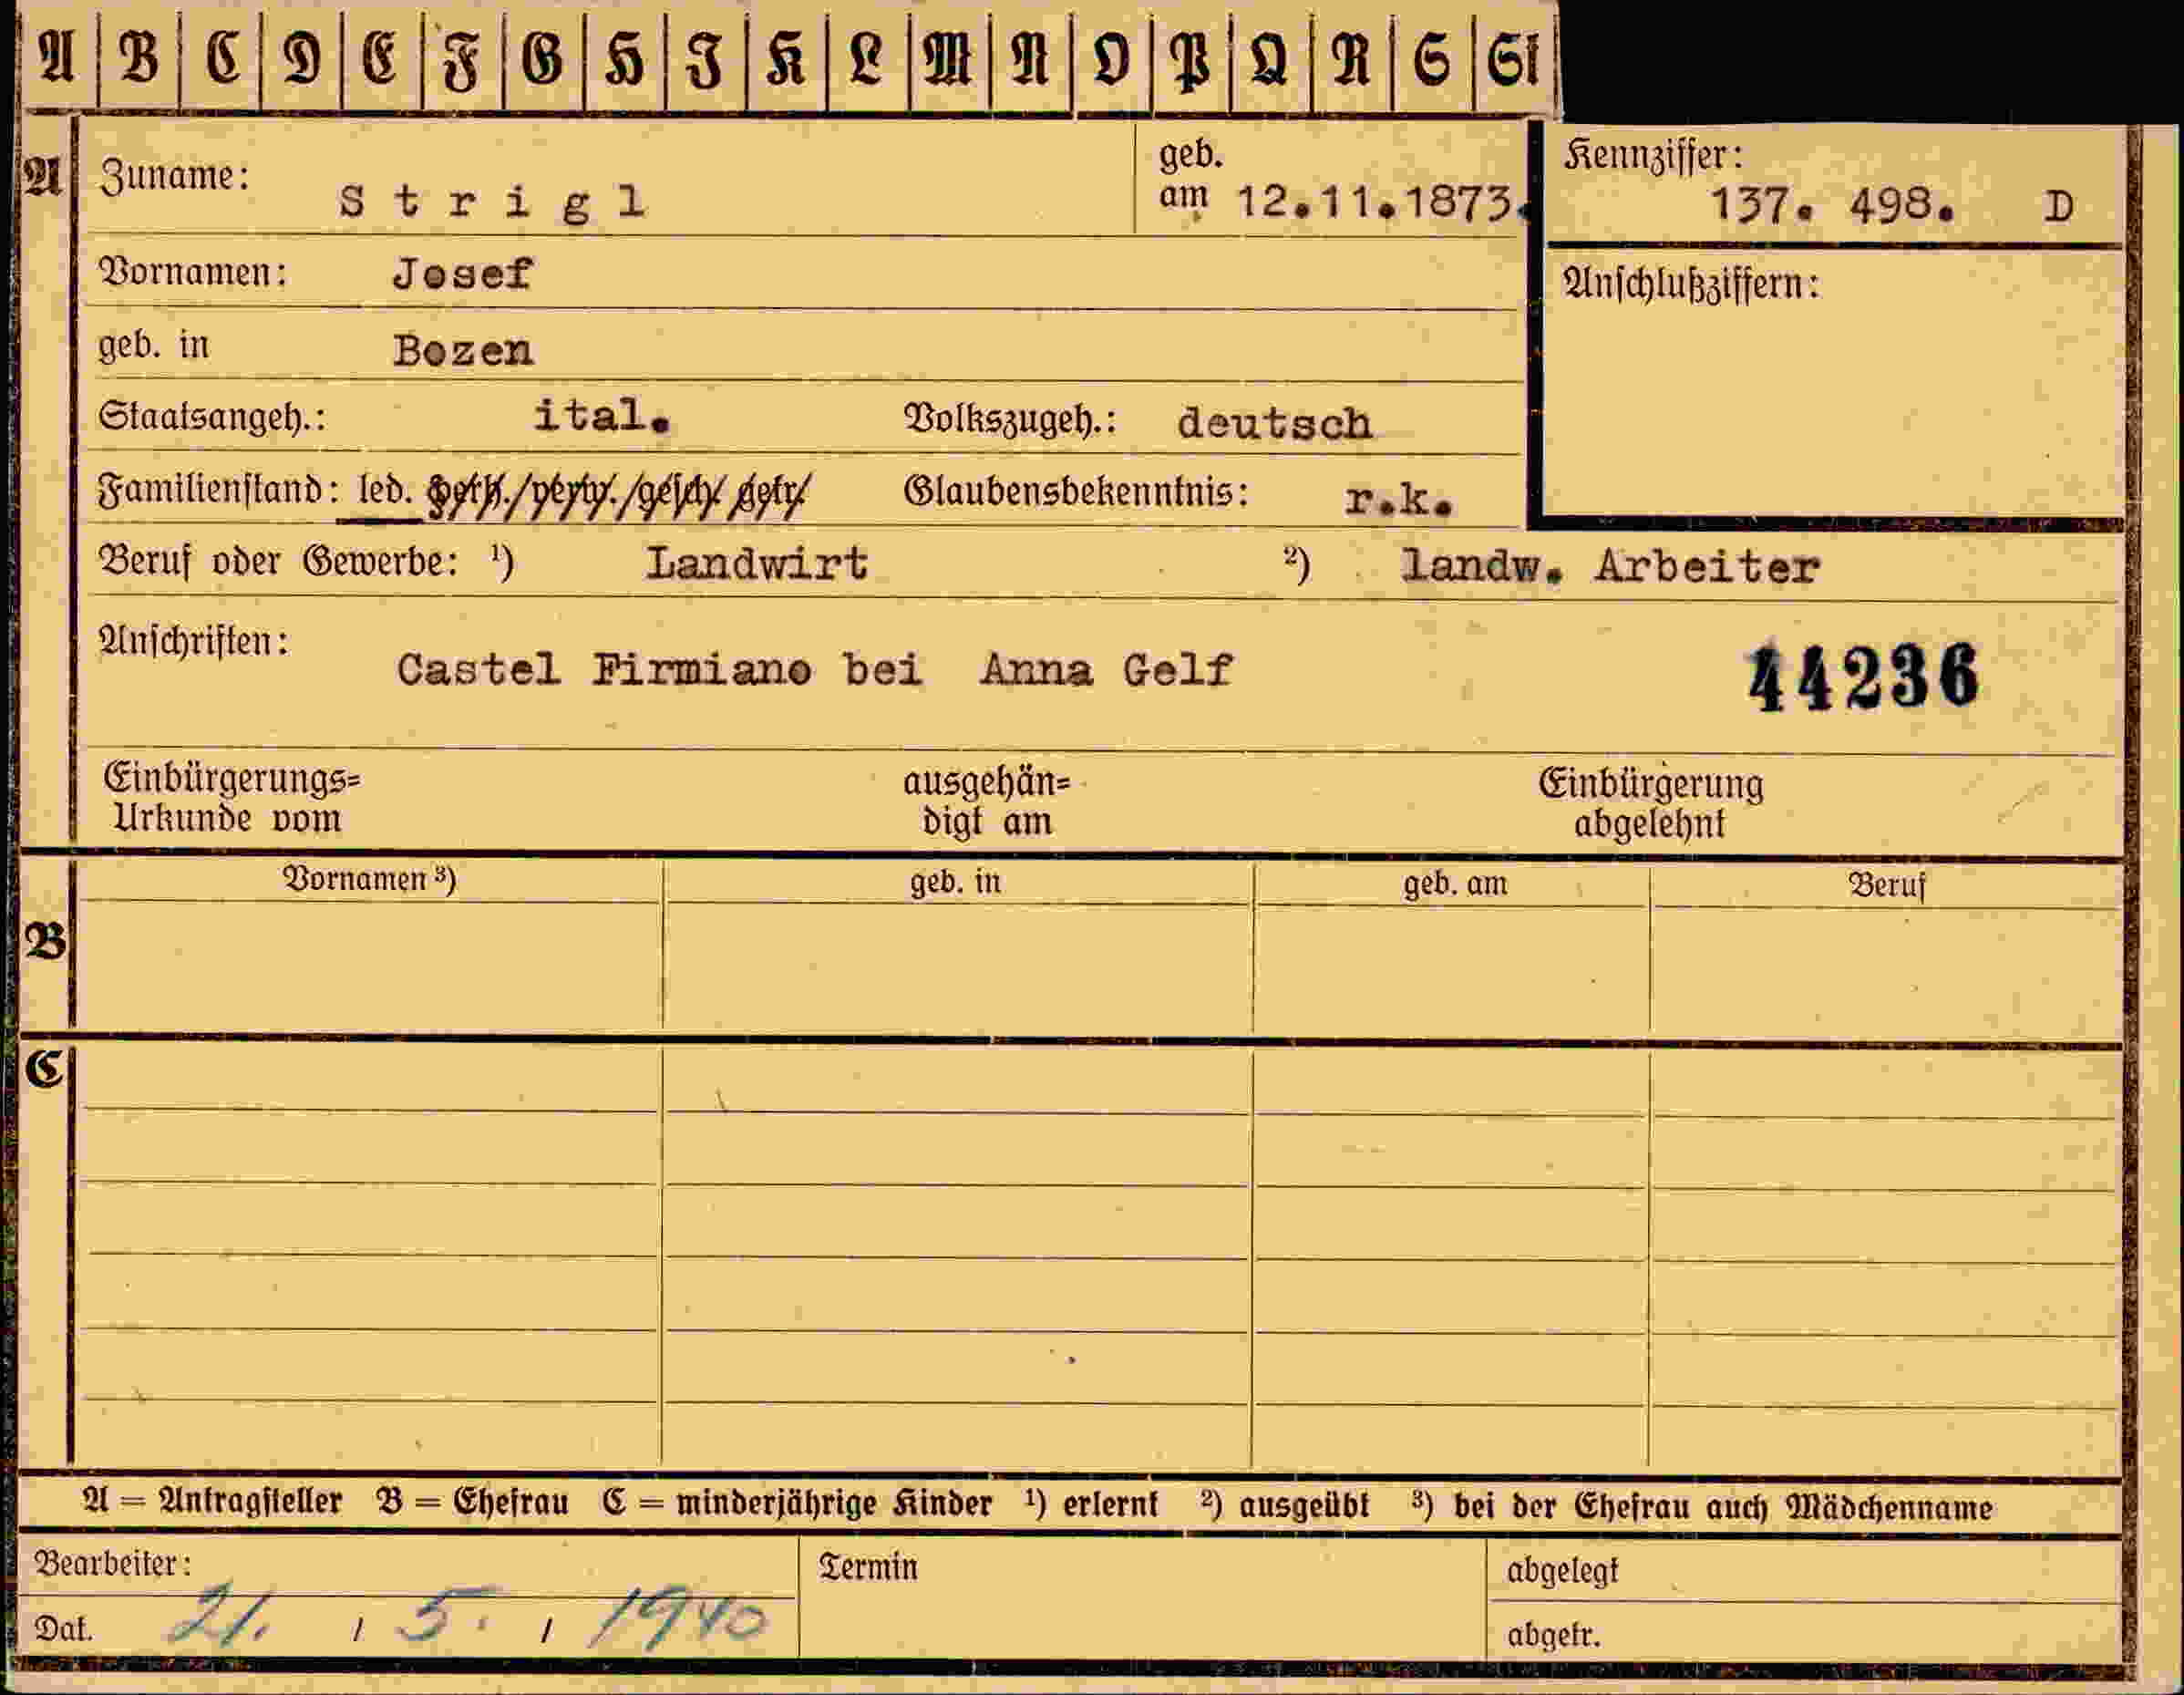 A B C D E F G H I K L M N O P Q R S St
A Zuname: Strigl geb. am 12.11.1873. Kennziffer: 137. 498. D
Vornamen: Josef Anschlußziffern:
geb. in Bozen
Staatsangeh.: ital. Volkszugeh.: deutsch
Familienstand: led. verh./verw./gesch/ getr/ Glaubensbekenntnis: r.k.
Beruf oder Gewerbe: ¹) Landwirt ²) landw. Arbeiter
Anschriften: Castel Firmiano bei Anna Gelf 44236
Einbürgerungs= ausgehän= Einbürgerung
Urkunde vom digt am abgelehnt
Vornamen ³) geb. in geb. am Beruf
B
C
A = Antragsteller B = Ehefrau C = minderjährige Kinder ¹) erlernt ²) ausgeübt ³) bei der Ehefrau auch Mädchenname
Bearbeiter: Termin abgelegt
Dat. 21. / 5. / 1940 abgetr.